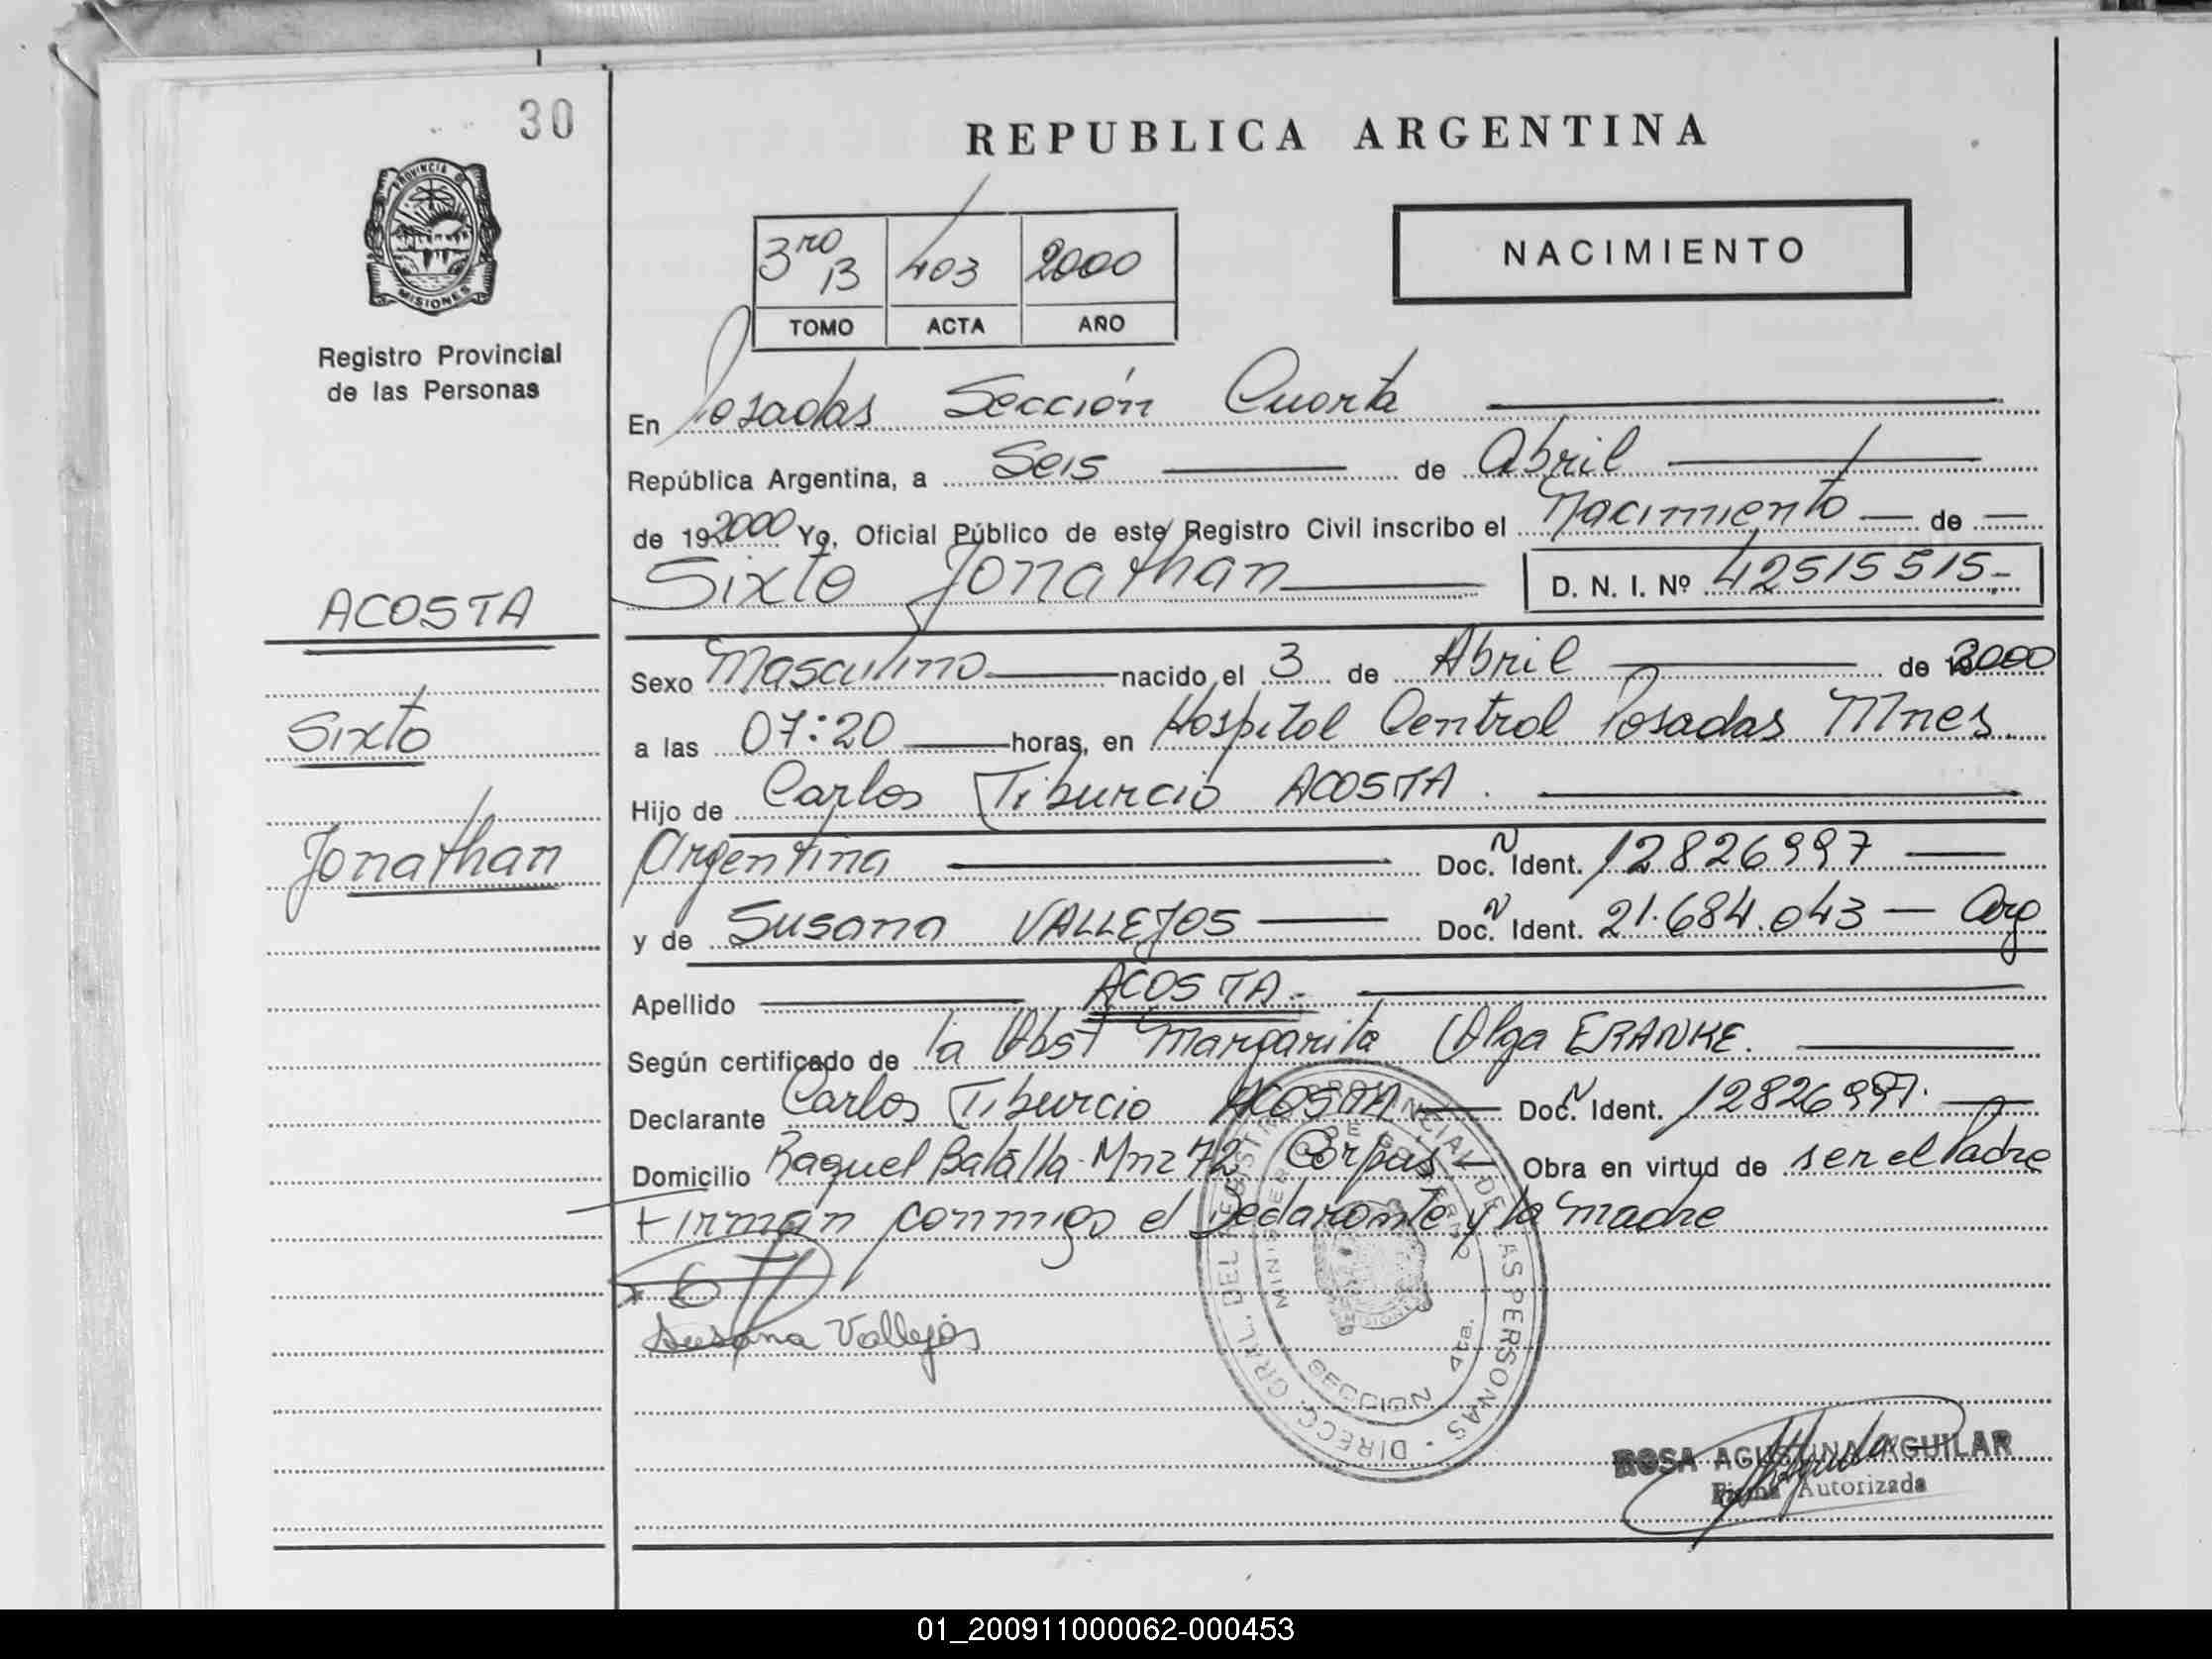 30
REPUBLICA ARGENTINA
PROVINCIA DE
MISIONES
Registro Provincial
de las Personas
3ro B 403 2000
TOMO ACTA AÑO
NACIMIENTO
En Posadas Sección Cuarta
República Argentina, a Seis de Abril
de 192000 Yo, Oficial Público de este Registro Civil inscribo el Nacimiento de
Sixto Jonathan D. N. I. Nº 42515515-
ACOSTA
Sixto
Jonathan
Sexo Masculino nacido el 3 de Abril de 2000
a las 07:20 horas, en Hospital Central Posadas Mnes.
Hijo de Carlos Tiburcio ACOSTA.
Argentina Doc. N Ident. 12826997
y de Susana VALLEJOS Doc. N Ident. 21.684.043 - Arg
Apellido ACOSTA.-
Según certificado de la Obst Margarita Olga ERANKE.
Declarante Carlos Tiburcio ACOSTA Doc. N Ident. 12826997.
Domicilio Raquel Batalla - Mnz 72 Corpus - Obra en virtud de ser el Padre
Firman conmigo el Declarante y la madre
Susana Vallejos
DIRECC. GRAL. DEL REGISTRO PROVINCIAL DE LAS PERSONAS -
MINISTERIO DE GOBIERNO
MISIONES
SECCION 4ta.
ROSA AGUSTINA AGUILAR
Firma Autorizada
01_200911000062-000453